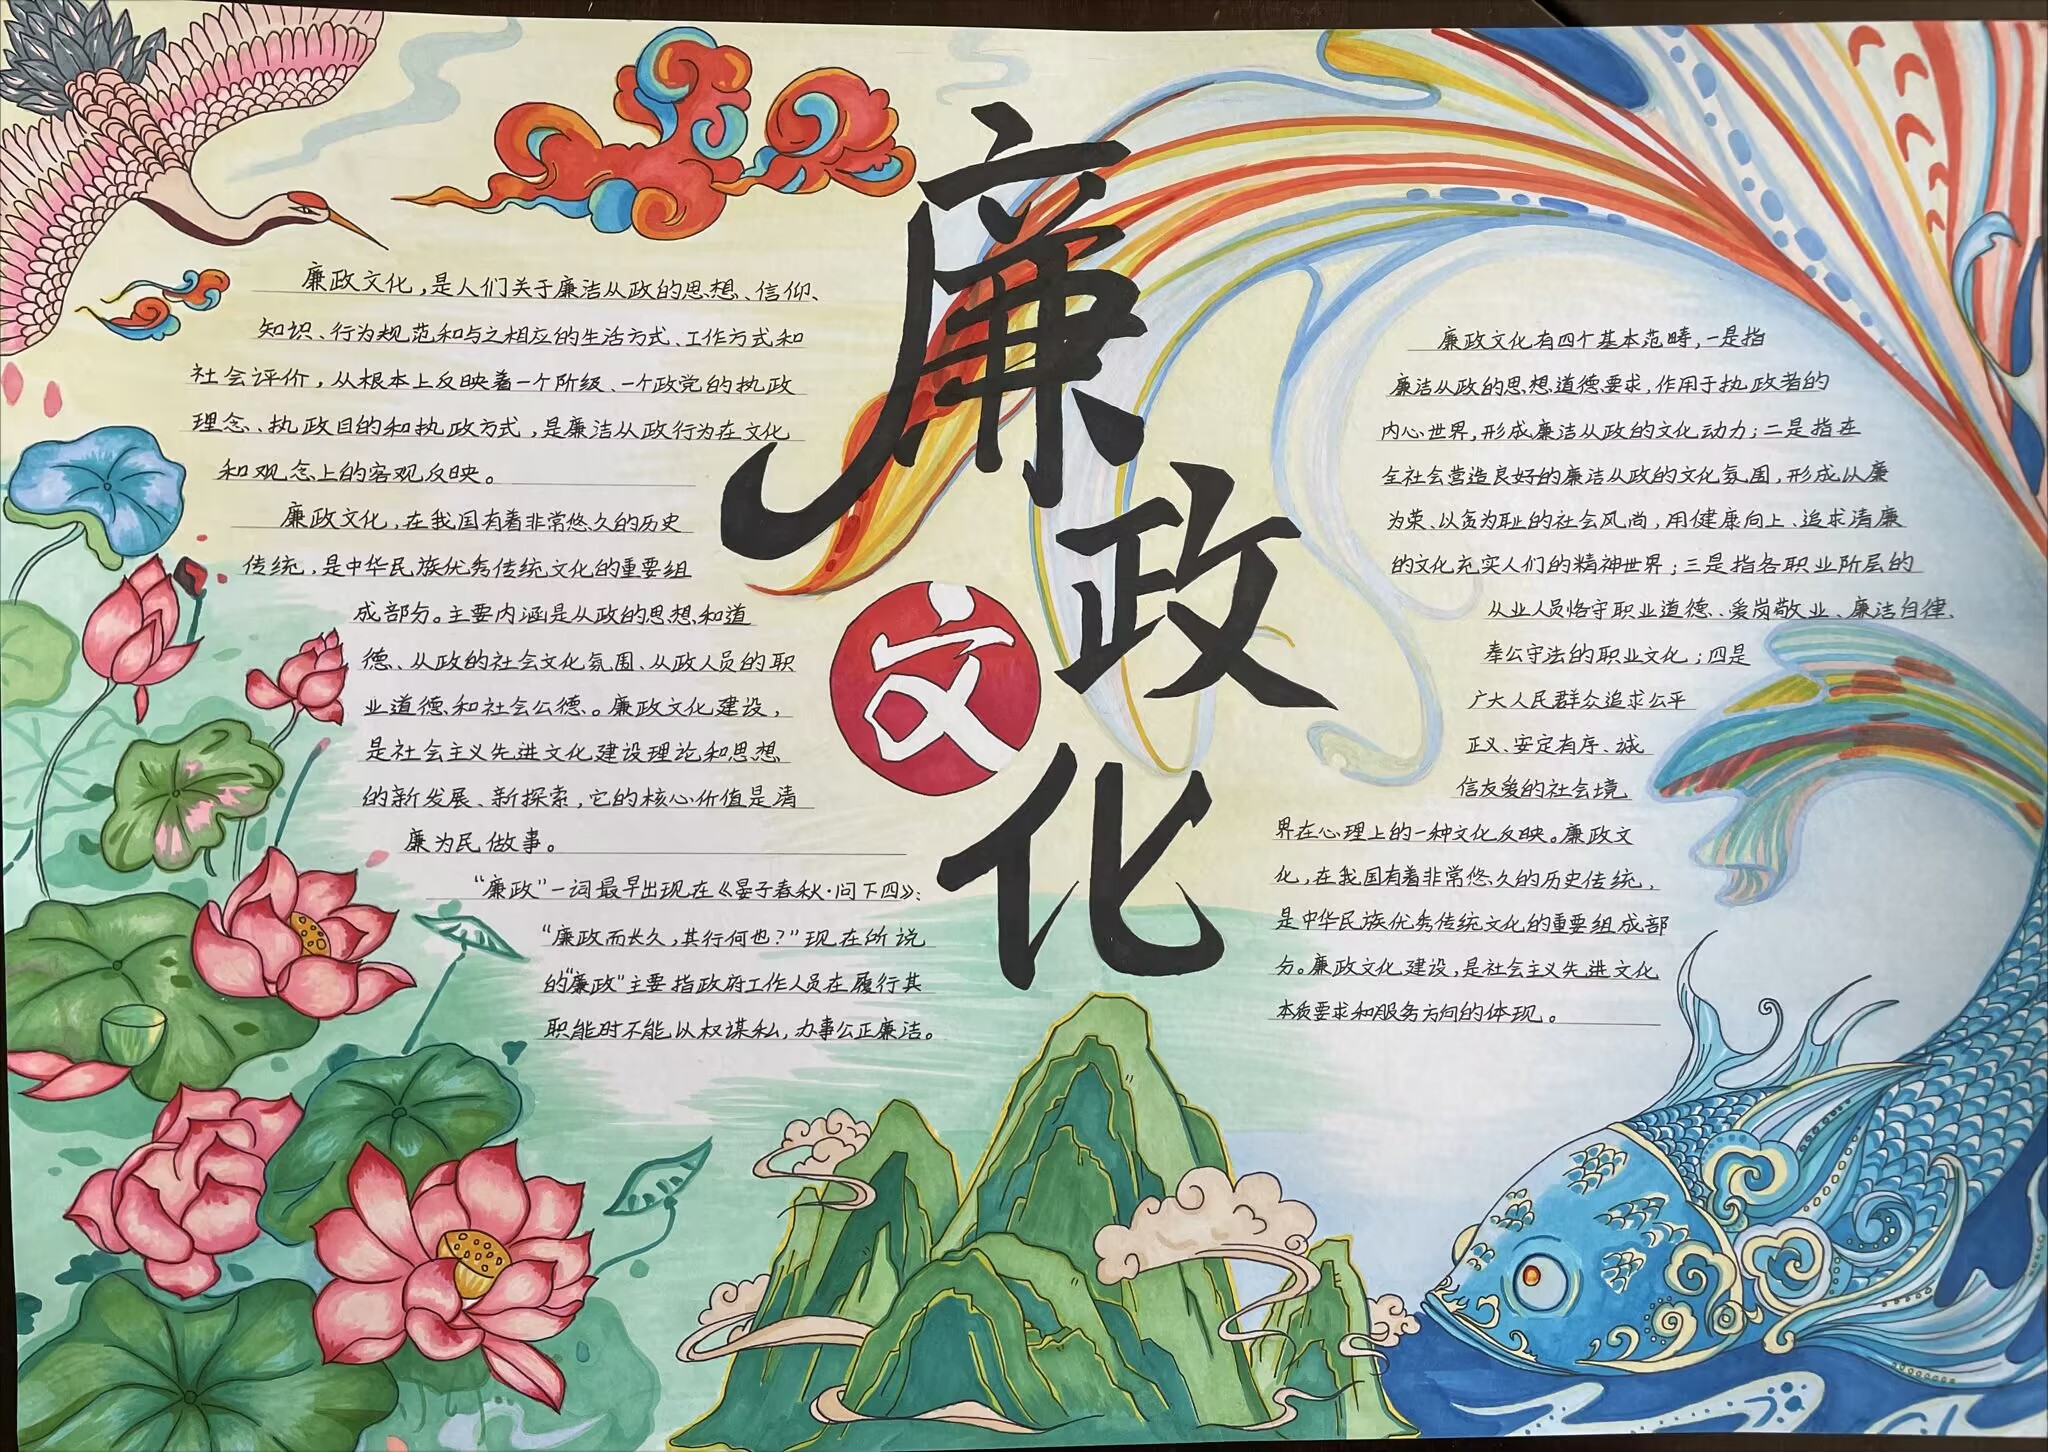 廉政文化
廉政文化,是人们关于廉洁从政的思想、信仰、
知识、行为规范和与之相应的生活方式、工作方式和
社会评价,从根本上反映着一个阶级、一个政党的执政
理念、执政目的和执政方式,是廉洁从政行为在文化
和观念上的客观反映。
廉政文化,在我国有着非常悠久的历史
传统,是中华民族优秀传统文化的重要组
成部分。主要内涵是从政的思想和道
德、从政的社会文化氛围、从政人员的职
业道德和社会公德。廉政文化建设,
是社会主义先进文化建设理论和思想
的新发展、新探索,它的核心价值是清
廉为民做事。
“廉政”一词最早出现在《晏子春秋·问下四》:
“廉政而长久,其行何也?”现在所说
的“廉政”主要指政府工作人员在履行其
职能时不能以权谋私,办事公正廉洁。
廉政文化有四个基本范畴,一是指
廉洁从政的思想道德要求,作用于执政者的
内心世界,形成廉洁从政的文化动力;二是指在
全社会营造良好的廉洁从政的文化氛围,形成以廉
为荣、以贪为耻的社会风尚,用健康向上、追求清廉
的文化充实人们的精神世界;三是指各职业阶层的
从业人员恪守职业道德、爱岗敬业、廉洁自律、
奉公守法的职业文化;四是
广大人民群众追求公平
正义、安定有序、诚
信友爱的社会境
界在心理上的一种文化反映。廉政文
化,在我国有着非常悠久的历史传统,
是中华民族优秀传统文化的重要组成部
分。廉政文化建设,是社会主义先进文化
本质要求和服务方向的体现。